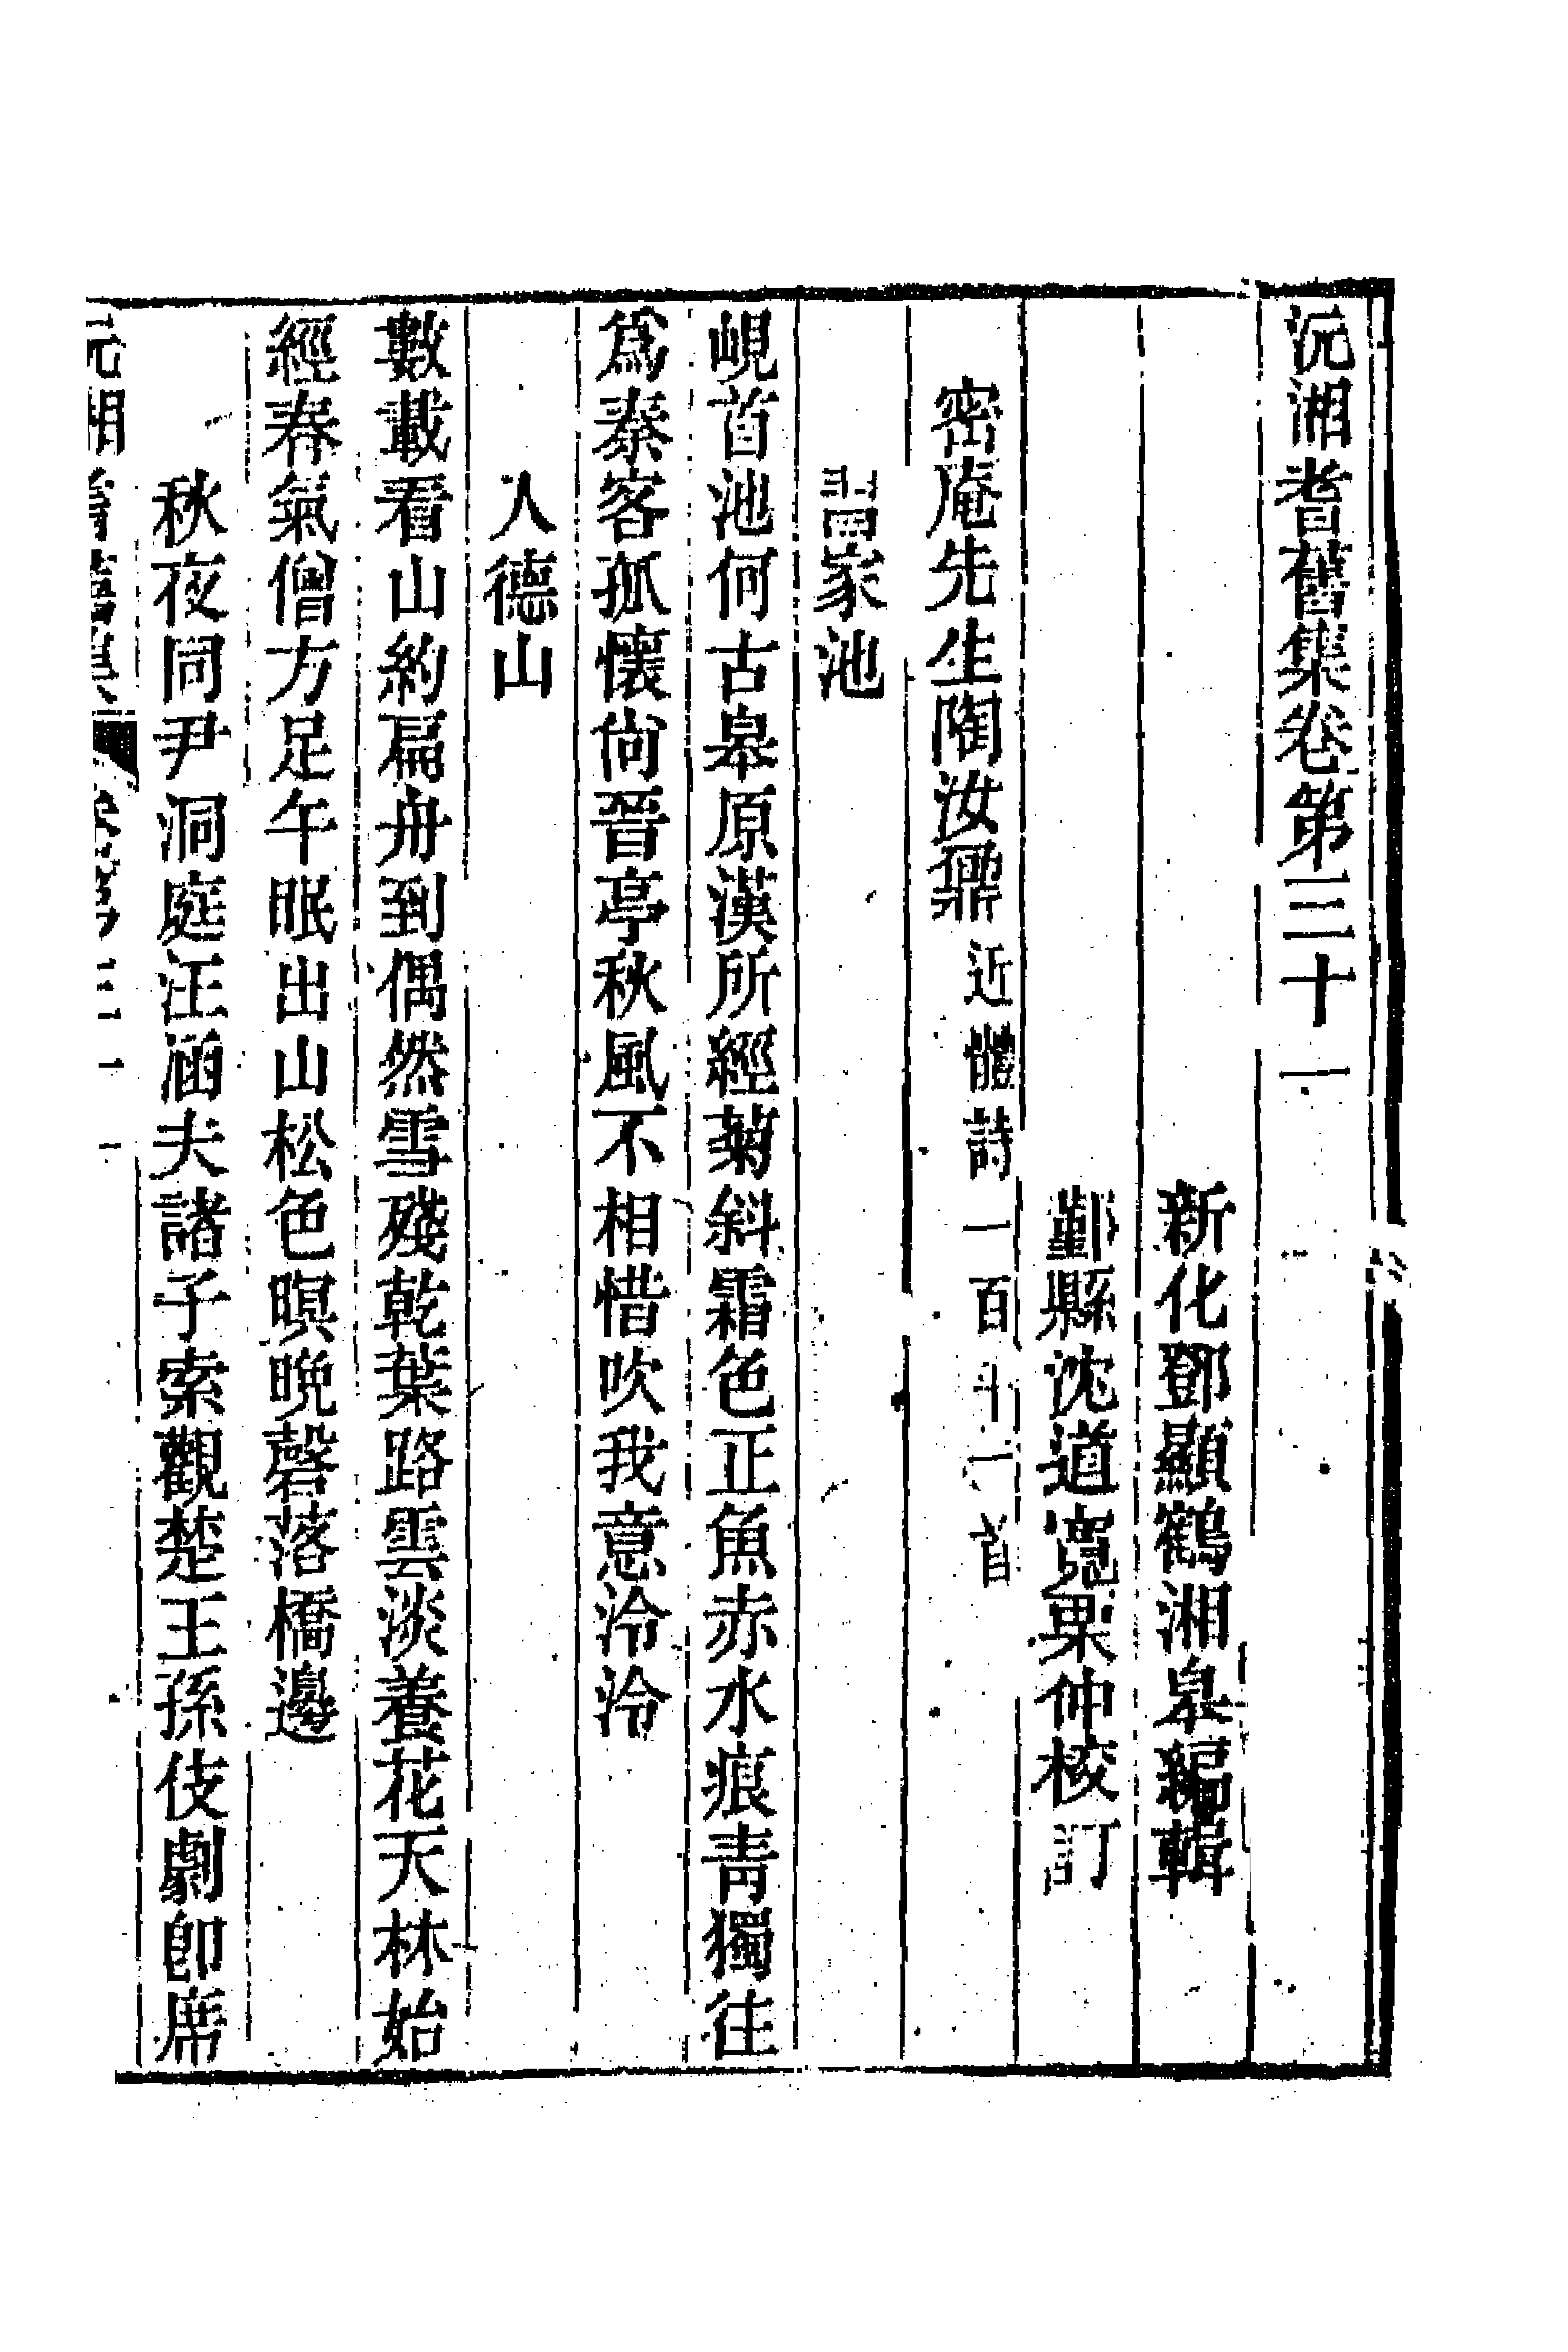 沅湘耆舊集卷第三十一
新化鄧顯鶴湘皋編輯
鄞縣沈道寬栗仲校訂
密庵先生陶汝鼐近體詩一百十一首
習家池
峴首池何古皋原漢所經菊斜霜色正魚赤水痕青獨往
爲秦客孤懷尙晉亭秋風不相惜吹我意泠泠
入德山
數載看山約扁舟到偶然雪殘乾葉路雲淡養花天林始
經春氣僧方足午眠出山松色暝晚磬落橋邊
秋夜同尹洞庭汪涵夫諸子索觀楚王孫伎劇卽席
沅湘耆舊集 卷第三十一